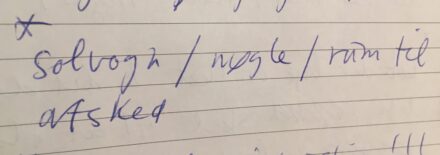 *
solvogn / nøgle / rum til
afsked
!!!